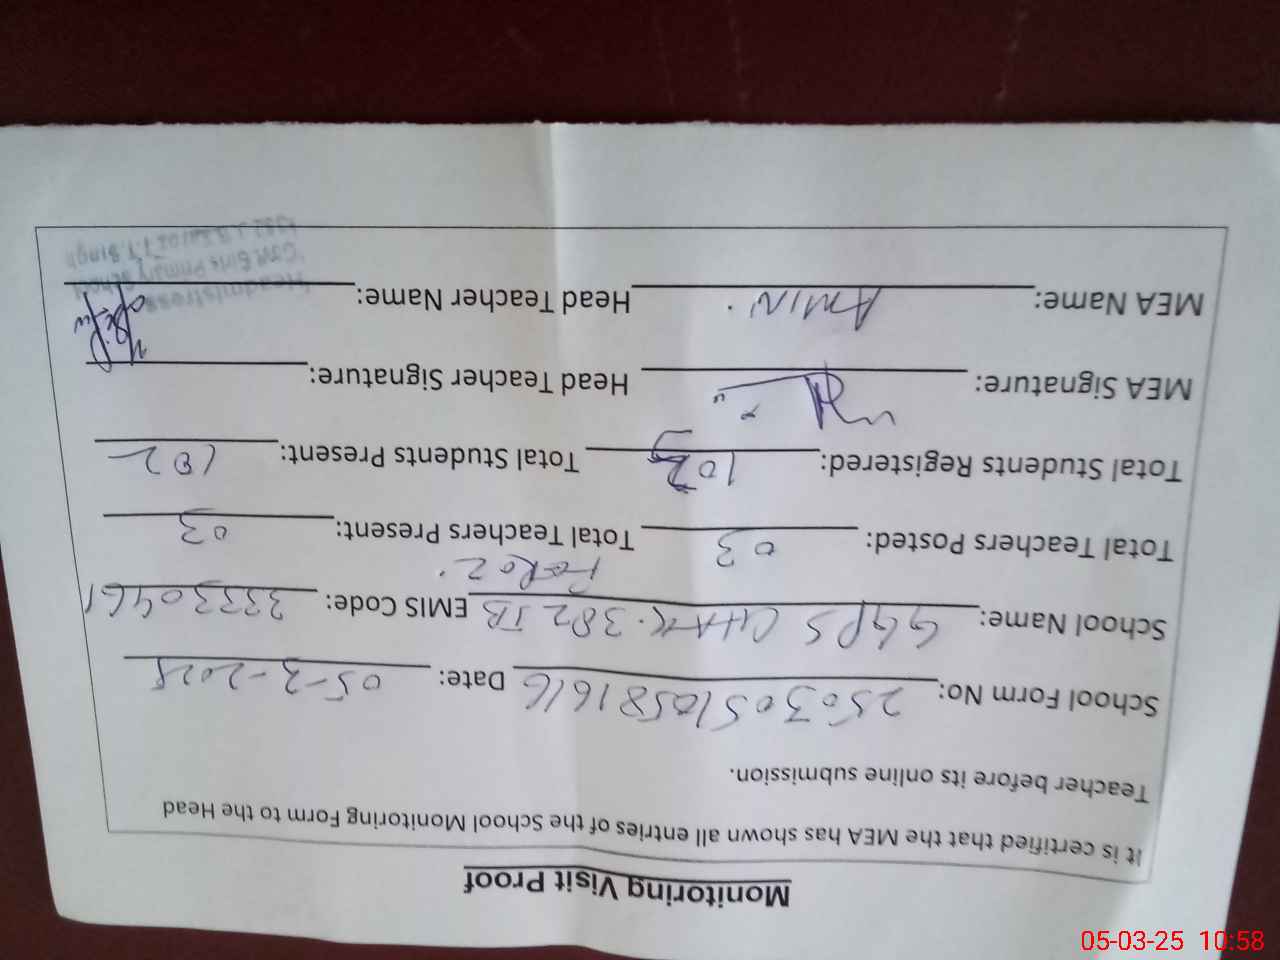 Monitoring Visit Proof
It is certified that the MEA has shown all entries of the School Monitoring Form to the Head
Teacher before its online submission.
School Form No: 25030510581616 Date: 05-3-2025
School Name: GGPS CHAK.382 JB EMIS Code: 33330461
Total Teachers Posted: 03 Total Teachers Present: 03
Total Students Registered: 102 Total Students Present: 102
MEA Signature: Head Teacher Signature:
MEA Name: AMIN Head Teacher Name:
Headmistress
Girls Primary School
T.T.Singh
05-03-25 10:58